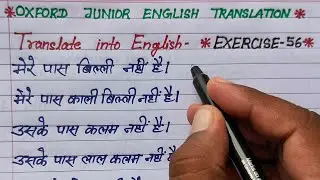 *OXFORD JUNIOR ENGLISH TRANSLATION*
Translate into English- *EXERCISE-56*
मेरे पास बिल्ली नहीं है।
मेरे पास काली बिल्ली नहीं है।
उसके पास कलम नहीं है।
उसके पास लाल कलम नहीं है